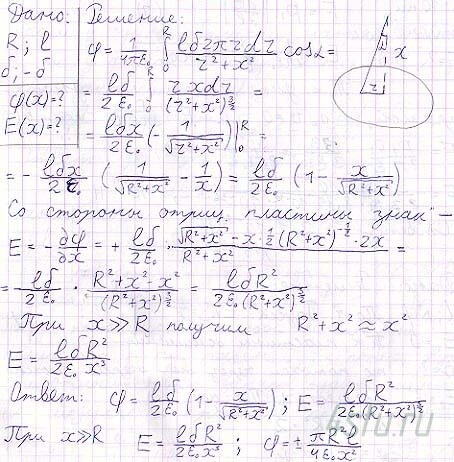 Дано: Решение:
R; l
б; -б
φ(x)=?
E(x)=?
φ = 1/(4πε₀) ∫₀ᴿ lб2πrdr/(r²+x²) cosα =
= lб/(2ε₀) ∫₀ᴿ rxdr/(r²+x²)^(3/2) =
= lбx/(2ε₀) (-1/√(r²+x²))|₀ᴿ =
= - lбx/(2ε₀) (1/√(R²+x²) - 1/x) = lб/(2ε₀) (1 - x/√(R²+x²))
x
r
Со стороны отриц. пластины знак "–
E = - ∂φ/∂x = + lб/(2ε₀) · (√(R²+x²) - x·½(R²+x²)^(-½)·2x)/(R²+x²) =
= lб/(2ε₀) · (R²+x²-x²)/(R²+x²)^(3/2) = lбR²/(2ε₀(R²+x²)^(3/2))
При x≫R получим R²+x² ≈ x²
E = lбR²/(2ε₀x³)
Ответ: φ = lб/(2ε₀) (1 - x/√(R²+x²)); E = lбR²/(2ε₀(R²+x²)^(3/2))
При x≫R E = lбR²/(2ε₀x³); φ = ± πR²l/(4ε₀x²)